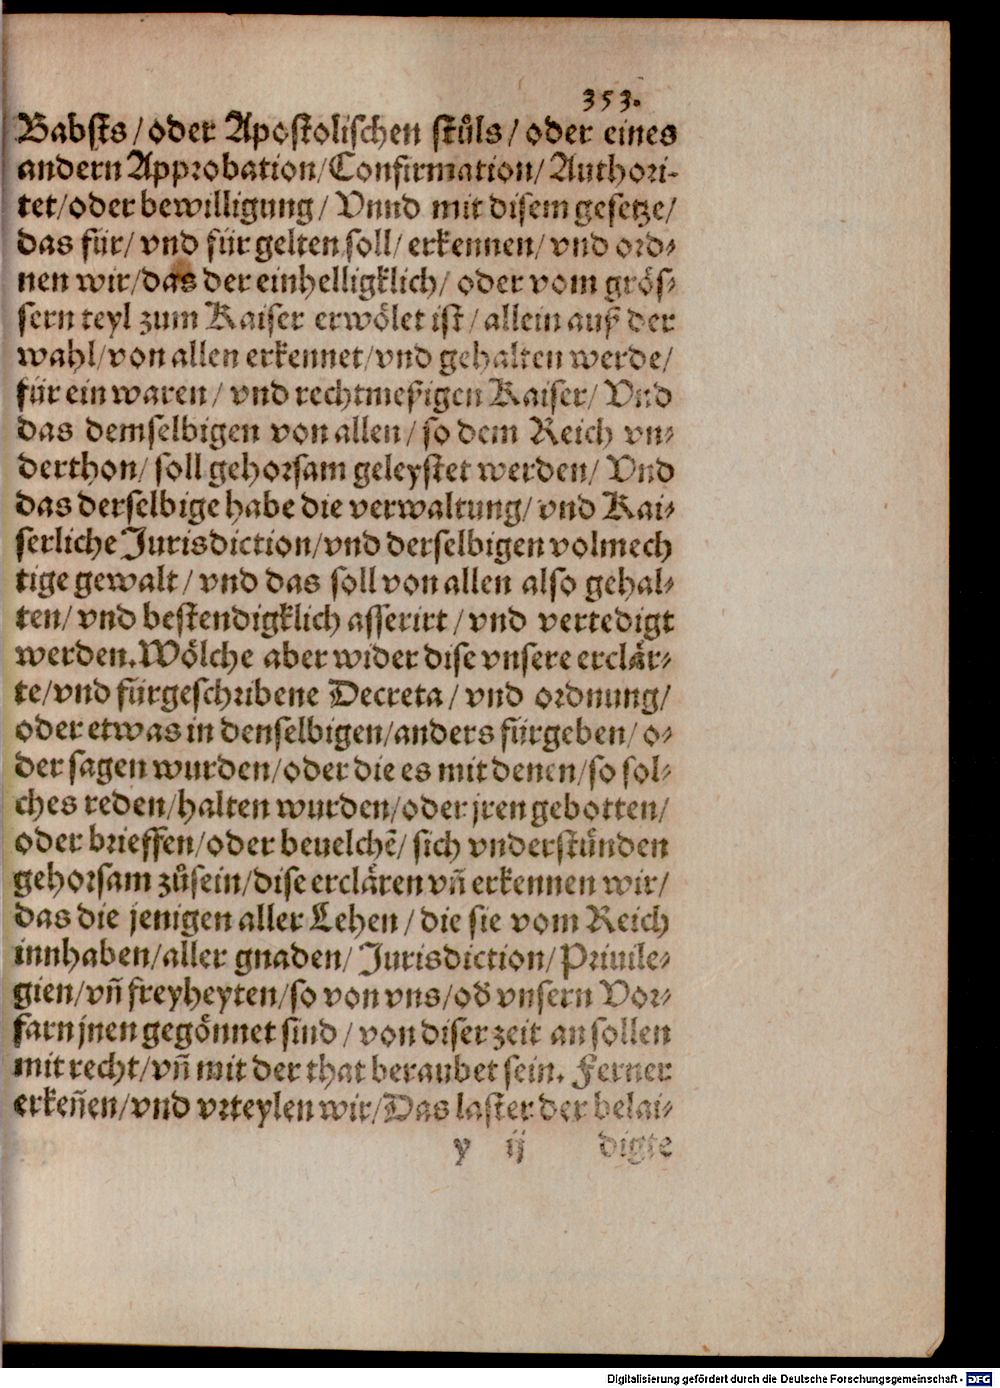 353.
Babsts/oder Apostolischen stůls/oder eines
andern Approbation/Confirmation/Authori-
tet/oder bewilligung/ Vnnd mit disem gesetze/
das für/ vnd für gelten soll/ erkennen/ vnd ord-
nen wir/das der einhelligklich/ oder vom grös-
sern teyl zum Kaiser erwölet ist/allein auß der
wahl/von allen erkennet/vnd gehalten werde/
für ein waren/ vnd rechtmeßigen Kaiser/ Vnd
das demselbigen von allen/ so dem Reich vn-
derthon/ soll gehorsam geleystet werden/ Vnd
das derselbige habe die verwaltung/ vnd Kai-
serliche Jurisdiction/vnd derselbigen volmech
tige gewalt/ vnd das soll von allen also gehal-
ten/ vnd bestendigklich asserirt/ vnd vertedigt
werden. Wölche aber wider dise vnsere erclär-
te/vnd fürgeschribene Decreta/ vnd ordnung/
oder etwas in denselbigen/anders fürgeben/ o-
der sagen wurden/oder die es mit denen/so sol-
ches reden/halten wurden/oder jren gebotten/
oder brieffen/oder beuelchẽ/ sich vnderstünden
gehorsam zůsein/dise erclären vñ erkennen wir/
das die jenigen aller Lehen/ die sie vom Reich
innhaben/aller gnaden/ Jurisdiction/ Priuile-
gien/vñ freyheyten/so von vns/od̃ vnsern Vor-
farn jnen gegönnet sind/ von diser zeit an sollen
mit recht/vñ mit der that beraubet sein. Ferner
erkeñen/vnd vrteylen wir/Das laster der belai-
y ij digte
Digitalisierung gefördert durch die Deutsche Forschungsgemeinschaft - DFG